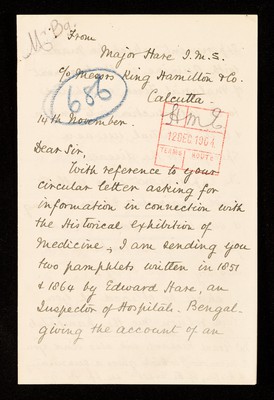 From
Major Hare I.M.S.
c/o Messrs King Hamilton & Co.
Calcutta.
686
14th November.
HMC
12 DEC 1904
Dear Sir,
With reference to your
circular letter asking for
information in connection with
the Historical exhibition of
Medicine, I am sending you
two pamphlets written in 1851
& 1864 by Edward Hare, an
Inspector of Hospitals - Bengal -
giving the account of an